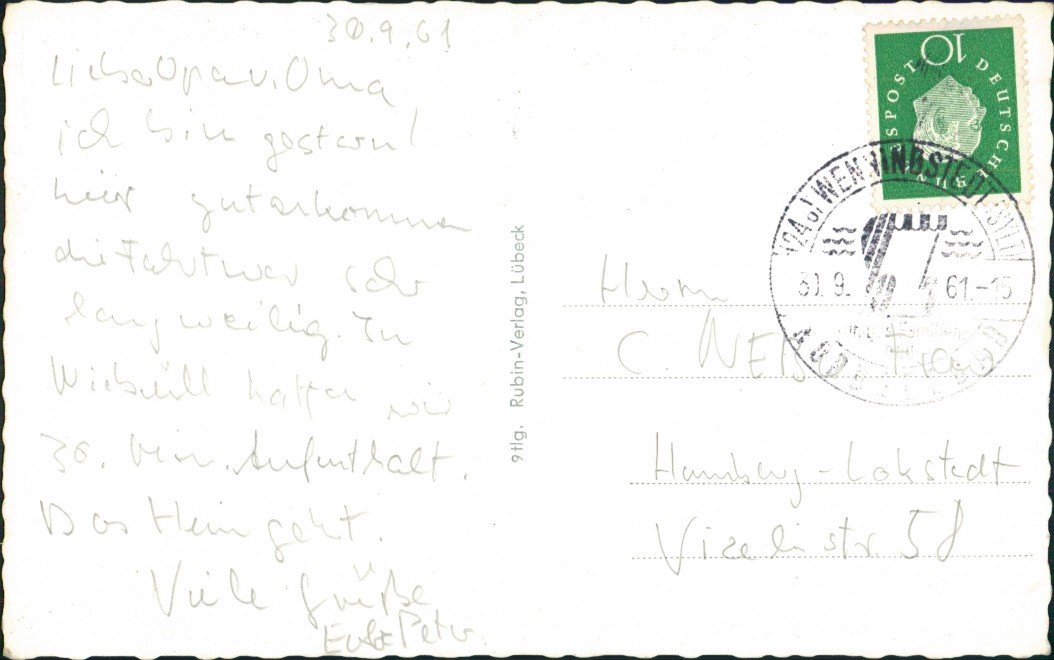 30.9.61
Liebe Opa u. Oma
ich bin gestern
hier gut ankommen
die Fahrt war sehr
langweilig. In
Wiebüll hatten wir
30. Min. Aufenthalt.
Das Heim geht.
Viele Grüße
Peter
9tlg. Rubin-Verlag, Lübeck
10
DEUTSCHE BUNDESPOST
(24b) WENNINGSTEDT (SYLT)
30.9.61.-15
Herrn
C. u. Frau
Hamburg-Lokstedt
Vizelinstr. 58